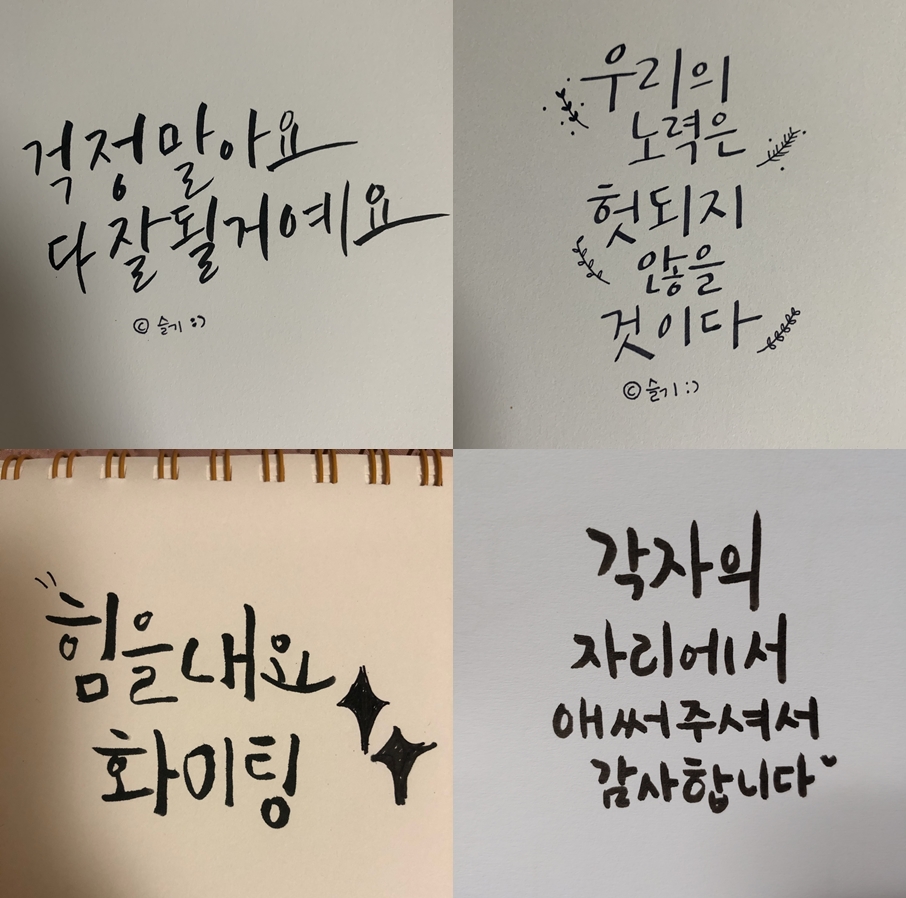 걱정말아요
다잘될거예요
© 슬기 :)
우리의
노력은
헛되지
않을
것이다
© 슬기 :)
힘을내요
화이팅
각자의
자리에서
애써주셔서
감사합니다